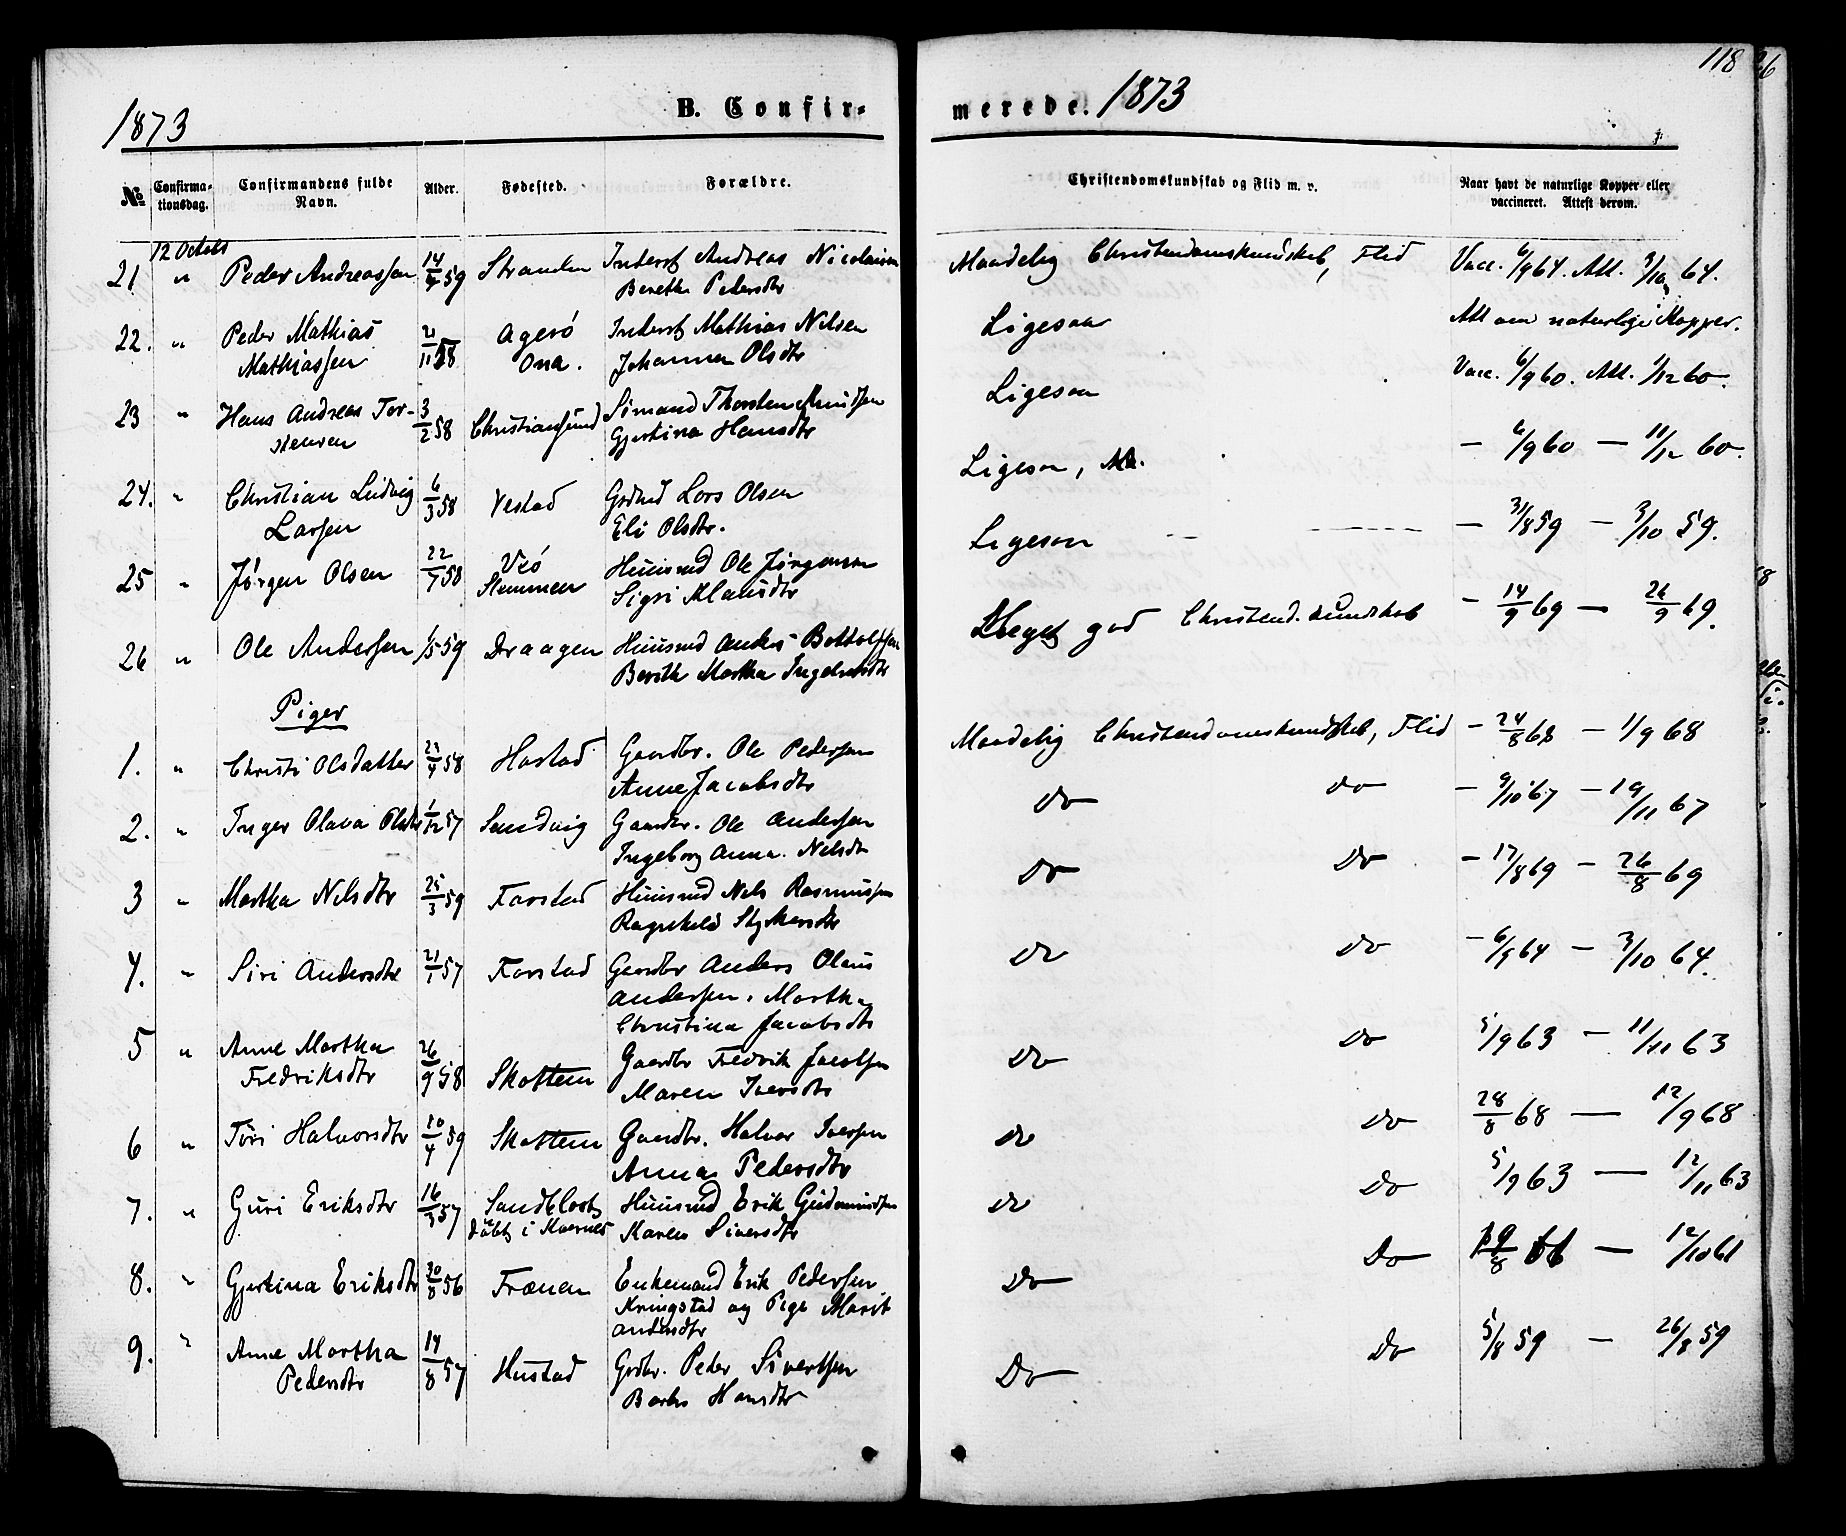 118
1873
B. Confir-
merede. 1873
№
Confirma-
tionsdag.
Confirmandens fulde
Navn.
Alder.
Fødested.
Forældre.
Christendomskundskab og Flid m. v.
Naar havt de naturlige Kopper eller
vaccineret. Attest derom.
12 Octobr
21 " Peder Andreassen 14/4 59 Stranden Inderst Andreas Nicolaisen
Berethe Pedersdtr
Maadelig Christendomskundskab, Flid Vacc. 6/9 64. Att. 3/10 64.
22. " Peder Mathias 2/11 58 Agerö Inderst Mathias Nilsen
Mathiassen Ona. Johanna Olsdtr
Ligesaa Att om naturlige Kopper.
23 " Hans Andreas Tor- 3/2 58 Christiansund Sömand Thorsten Knudsen
stensen Gjertina Hansdtr
Ligesaa Vacc. 6/9 60. Att. 1/12 60.
24. " Christian Ludvig 6/3 58 Vestad Grdmd Lars Olsen
Larsen Eli Olsdtr.
Ligesaa, — 6/9 60 — 11/12 60.
25 " Jørgen Olsen 22/7 58 Veö Huusmd Ole Jørgensen
Stemmen Sigri Klausdtr
Ligesaa — 31/8 59 — 3/10 59.
26 " Ole Andersen 1/5 59 Draagen Huusmd Anders Bottolfsen
Berith Martha Ingebrigtsdtr
Meget god Christend.kundskab — 14/9 69 — 26/9 69.
Piger
1. " Christi Olsdatter 24/4 58 Hostad Gaardbr. Ole Pedersen
Anne Jacobsdtr
Maadelig Christendomskundskab, Flid — 24/8 68 — 1/9 68
2. " Inger Olava Olsdtr 1/12 57 Sandvig Gaardbr. Ole Andersen
Ingeborg Anna. Nelsdtr
Do Do — 9/10 67 — 19/11 67
3 " Martha Nilsdtr 25/3 59 Farstad Huusmd Nels Rasmussen
Ragnhild Styrkersdtr
Do Do — 17/8 69 — 26/8 69
4. " Siri Andersdtr 21/1 57 Farstad Gaardbr Anders Olaus
Andersen. Martha
Christina Jacobsdtr
Do Do — 6/9 64 — 3/10 64.
5 " Anne Martha 26/9 58 Skottem Gaardbr Fredrik Jacobsen
Fredriksdtr Maren Iversdtr
Do Do 5/9 63 — 11/11 63
6 " Töri Halvorsdtr 10/4 59 Skottem Gaardbr. Halvor Iversen
Anna Pedersdtr
Do Do 28/8 68 — 12/9 68
7. " Guri Eriksdtr 16/3 57 Sandblost Huusmd Erik Gudmundsen
döbt i Kvernes Karen Siversdtr
Do Do 5/9 63 — 12/11 63
8. " Gjertina Eriksdtr 30/8 56 Frænen Enkemand Erik Pedersen
Kringstad og Pige Marit
Andersdtr
Do Do 19/8 61 — 12/10 61
9. " Anne Martha 14/8 57 Hustad Grdbr. Peder Sivertsen
Pedersdtr Barbro Hansdtr
Do Do 5/8 59 — 26/8 59